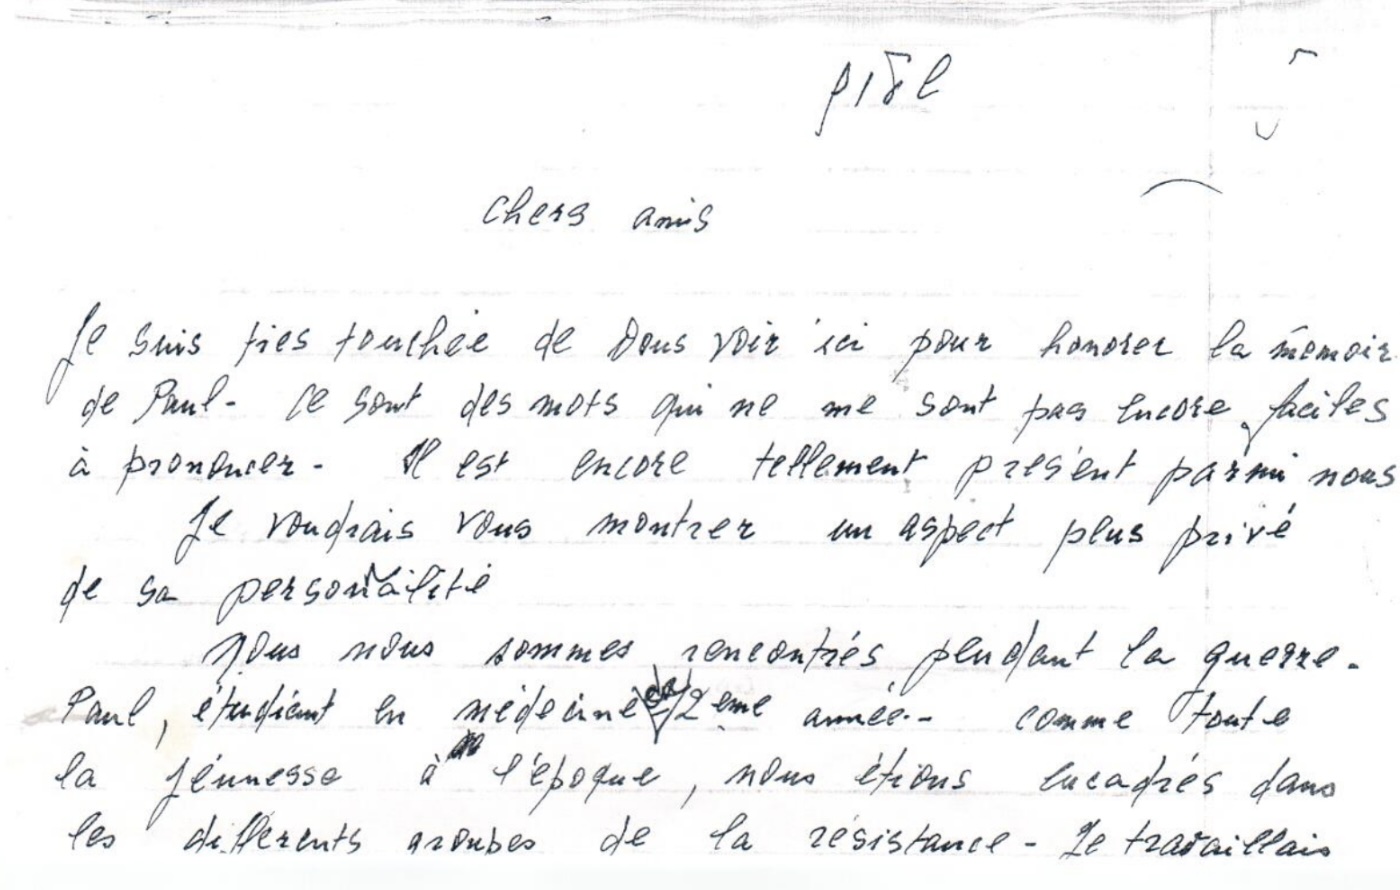 chers amis
Je suis très touchée de vous voir ici pour honorer la mémoir
de Paul - ce sont des mots qui ne me sont pas encore faciles
à prononcer - Il est encore tellement présent parmi nous
Je voudrais vous montrer un aspect plus privé
de sa personnalité
Nous nous sommes rencontrés pendant la guerre -
Paul, étudiant en médecine de 2ème année - comme toute
la jeunesse à l'époque, nous étions encadrés dans
les différents groupes de la résistance - Je travaillais